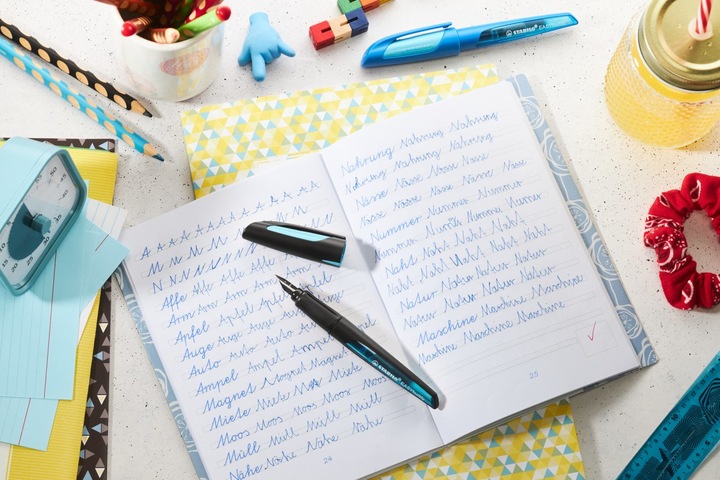 STABILO EASY
A A A A A A A A A A A A A
M M M M M M M
N N N N N N N
Affe Affe Affe Affe Affe
Arm Arm Arm Arm Arm
Apfel Apfel Apfel Apfel
Auge Auge Auge Auge
Auto Auto Auto Auto
Ampel Ampel Ampel
Magnet Magnet Magnet
Miete Miete Miete
Moos Moos Moos Moos Moos
Müll Müll Müll Müll
Nähe Nähe Nähe Nähe
24
Nahrung Nahrung Nahrung
Nahrung Nahrung Nahrung
Nässe Nässe Nässe Nässe
Nässe Nässe Nässe Nässe Nässe
Nummer Nummer Nummer
Nummer Nummer Nummer
Naht Naht Naht Naht
Naht Naht Naht Naht Naht
Natur Natur Natur Natur
Natur Natur Natur Natur
Maschine Maschine Maschine
Maschine Maschine Maschine
25
STABILO EASY